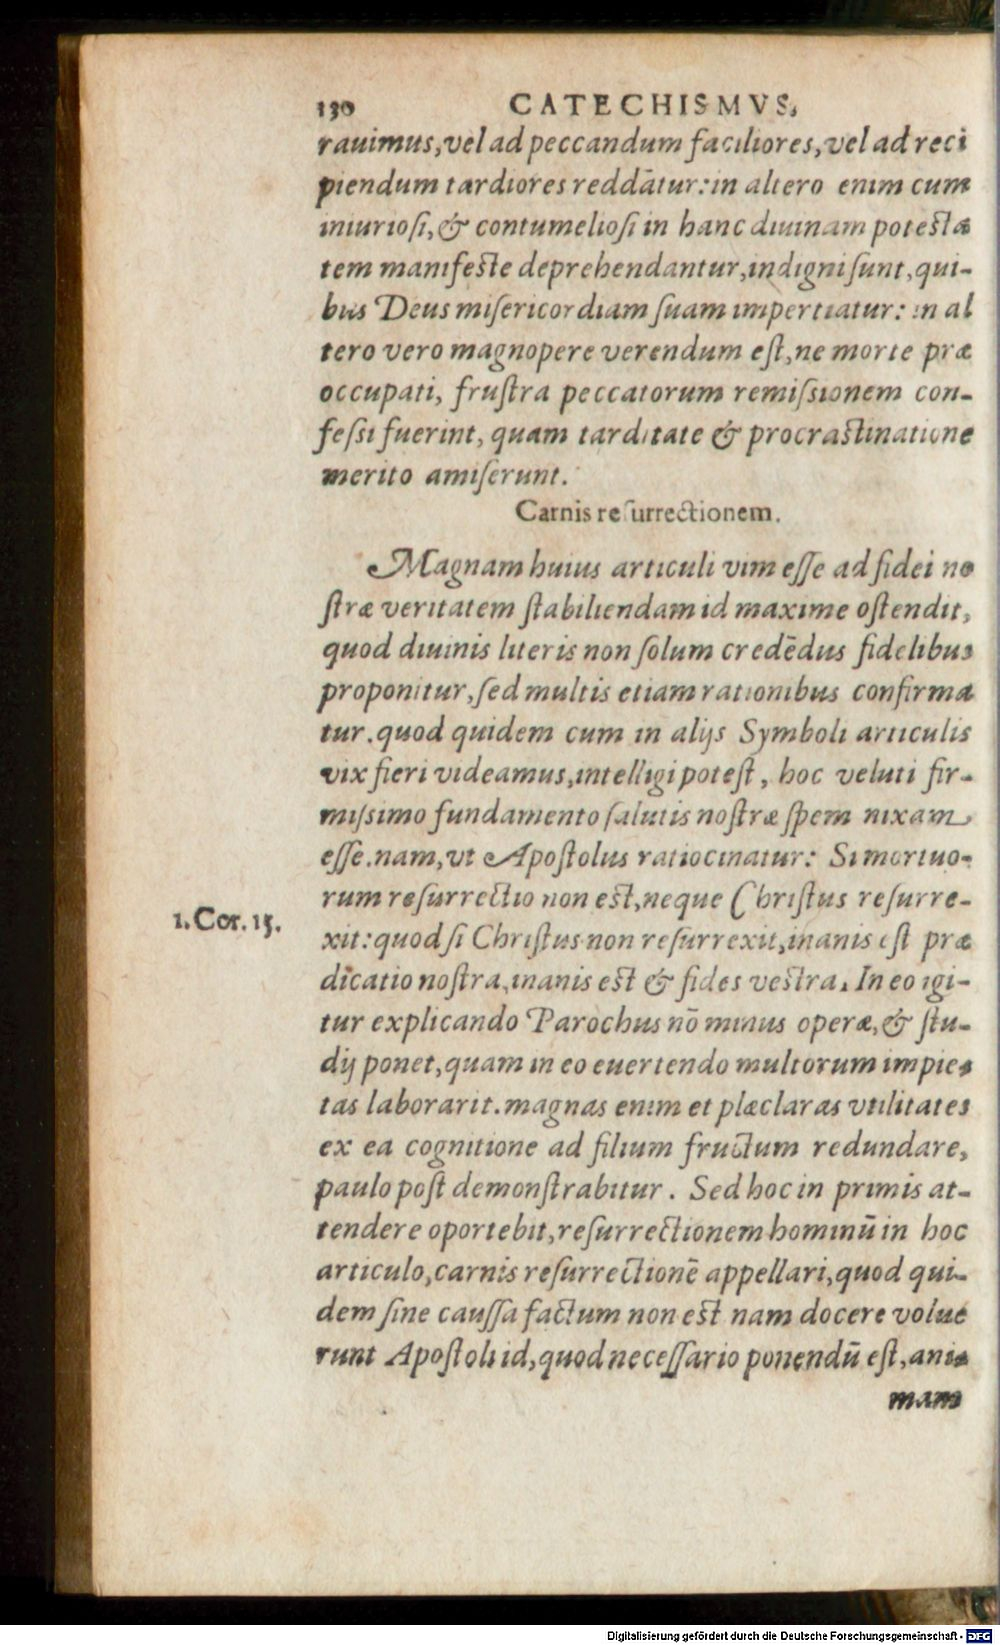 130 CATECHISMVS,
rauimus, vel ad peccandum faciliores, vel ad reci
piendum tardiores reddātur: in altero enim cum
iniuriosi, & contumeliosi in hanc diuinam potesta
tem manifeste deprehendantur, indigni sunt, qui-
bus Deus misericordiam suam impertiatur: in al
tero vero magnopere verendum est, ne morte præ
occupati, frustra peccatorum remissionem con-
fessi fuerint, quam tarditate & procrastinatione
merito amiserunt.
Carnis resurrectionem.
Magnam huius articuli vim esse ad fidei no
stræ veritatem stabiliendam id maxime ostendit,
quod diuinis literis non solum credēdus fidelibus
proponitur, sed multis etiam rationibus confirma
tur. quod quidem cum in alijs Symboli articulis
vix fieri videamus, intelligi potest, hoc veluti fir-
missimo fundamento salutis nostræ spem nixam
esse. nam, vt Apostolus ratiocinatur: Si mortuo-
rum resurrectio non est, neque Christus resurre-
1. Cor. 15.
xit: quod si Christus non resurrexit, inanis est præ
dicatio nostra, inanis est & fides vestra. In eo igi-
tur explicando Parochus nō minus operæ, & stu-
dij ponet, quam in eo euertendo multorum impie-
tas laborarit. magnas enim et plæclaras vtilitates
ex ea cognitione ad filium fructum redundare,
paulo post demonstrabitur. Sed hoc in primis at-
tendere oportebit, resurrectionem hominū in hoc
articulo, carnis resurrectionē appellari, quod qui-
dem sine caussa factum non est nam docere volue
runt Apostoli id, quod necessario ponendū est, ani-
mam
Digitalisierung gefördert durch die Deutsche Forschungsgemeinschaft - DFG